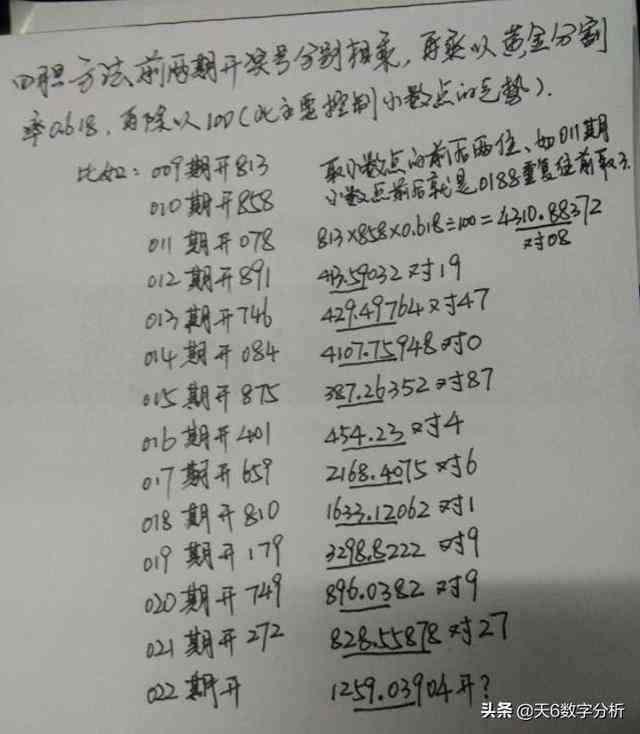 四胆方法前两期开奖号分别相乘,再乘以黄金分割
率0.618,再除以100(此主要控制小数点的走势).
比如:009期开813
取小数点的前后两位、如011期
010期开858
小数点前后就是0188重复位前取3.
011期开078 813×858×0.618÷100=4310.88372
对08
012期开891 413.59032对19
013期开746 429.49764对47
014期开084 4107.75948对0
015期开875 387.26352对87
016期开401 454.23对4
017期开659 2168.4075对6
018期开810 1633.12062对1
019期开179 3298.8222对9
020期开749 896.0382对9
021期开272 828.55878对27
022期开 1259.03904开?
头条@天6数字分析